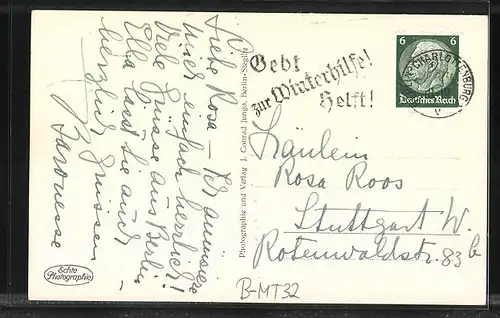 Liebe Rosa – Ich amüsiere
mich einfach herrlich!
Viele Grüsse aus Berlin –
Ella lässt Sie auch
herzlich grüssen
Baronesse
Echte
Photographie
Photographie und Verlag J. Conrad Junga, Berlin-Steglitz
Gebt
zur Winterhilfe!
Helft!
6 6
Deutsches Reich
CHARLOTTENBURG
Fräulein
Rosa Roos
Stuttgart W.
Rotenwaldstr. 83b
B-MT32